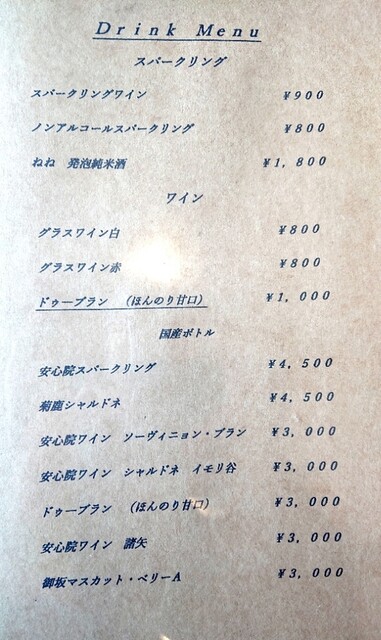 Drink Menu
スパークリング
スパークリングワイン ¥900
ノンアルコールスパークリング ¥800
ねね 発泡純米酒 ¥1,800
ワイン
グラスワイン白 ¥800
グラスワイン赤 ¥800
ドゥーブラン (ほんのり甘口) ¥1,000
国産ボトル
安心院スパークリング ¥4,500
菊鹿シャルドネ ¥4,500
安心院ワイン ソーヴィニョン・ブラン ¥3,000
安心院ワイン シャルドネ イモリ谷 ¥3,000
ドゥーブラン (ほんのり甘口) ¥3,000
安心院ワイン 諸矢 ¥3,000
御坂マスカット・ベリーA ¥3,000